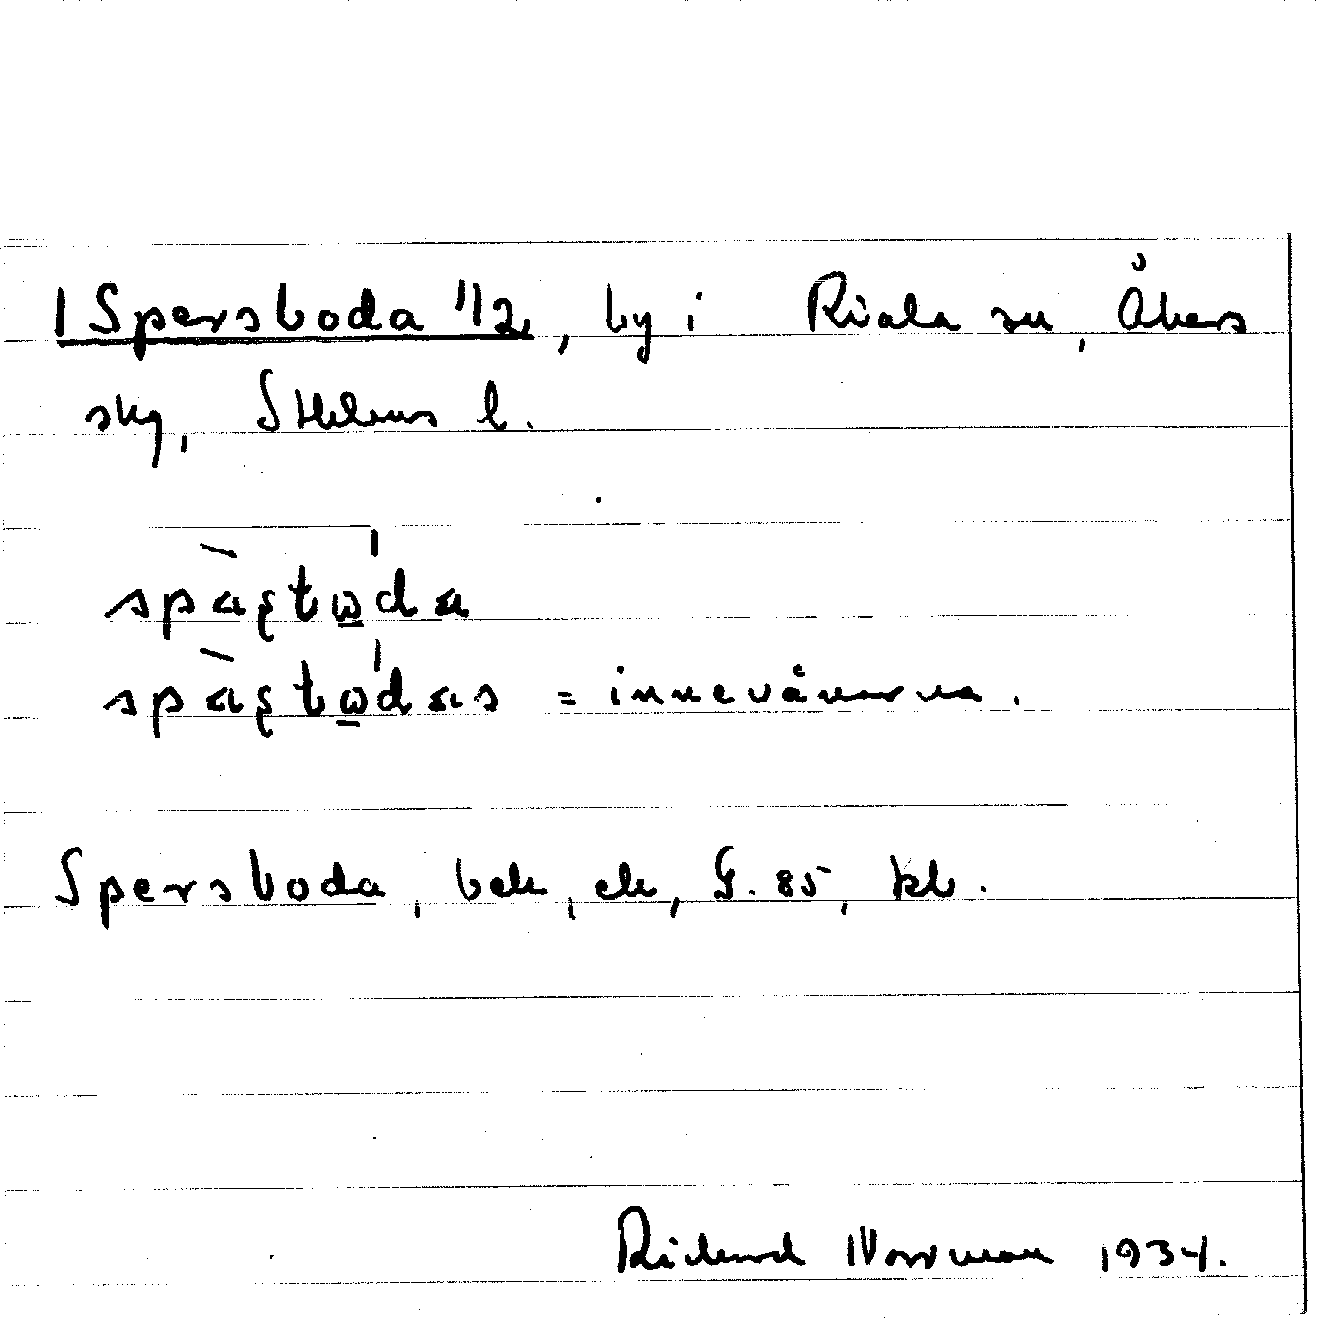 1 Spersboda 1/2, by i Riala sn, Åkers
skg, Sthlms l.
spàʂbω̲da
spàʂbω̲das = innevånarna.
Spersboda, bek, ek, G. 85, kb.
Rickard Norrman 1934.